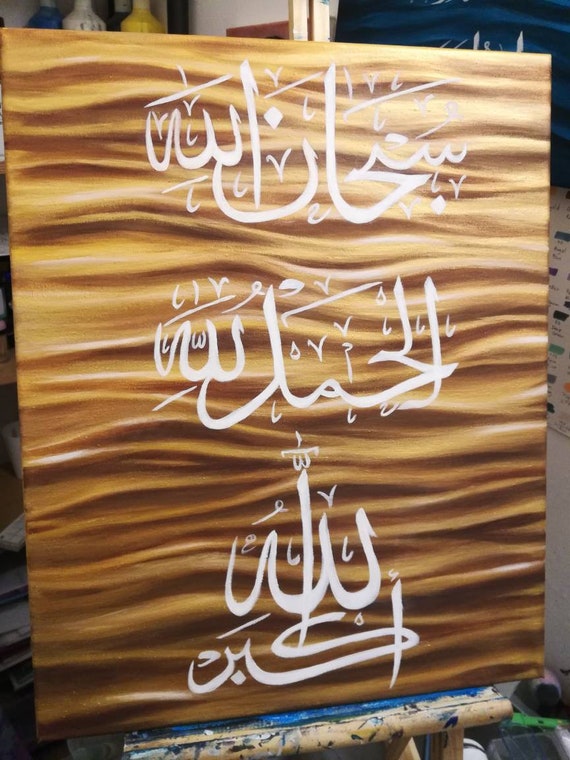 سُبْحَانَ اللَّهِ
الْحَمْدُ لِلَّهِ
اللَّهُ أَكْبَر